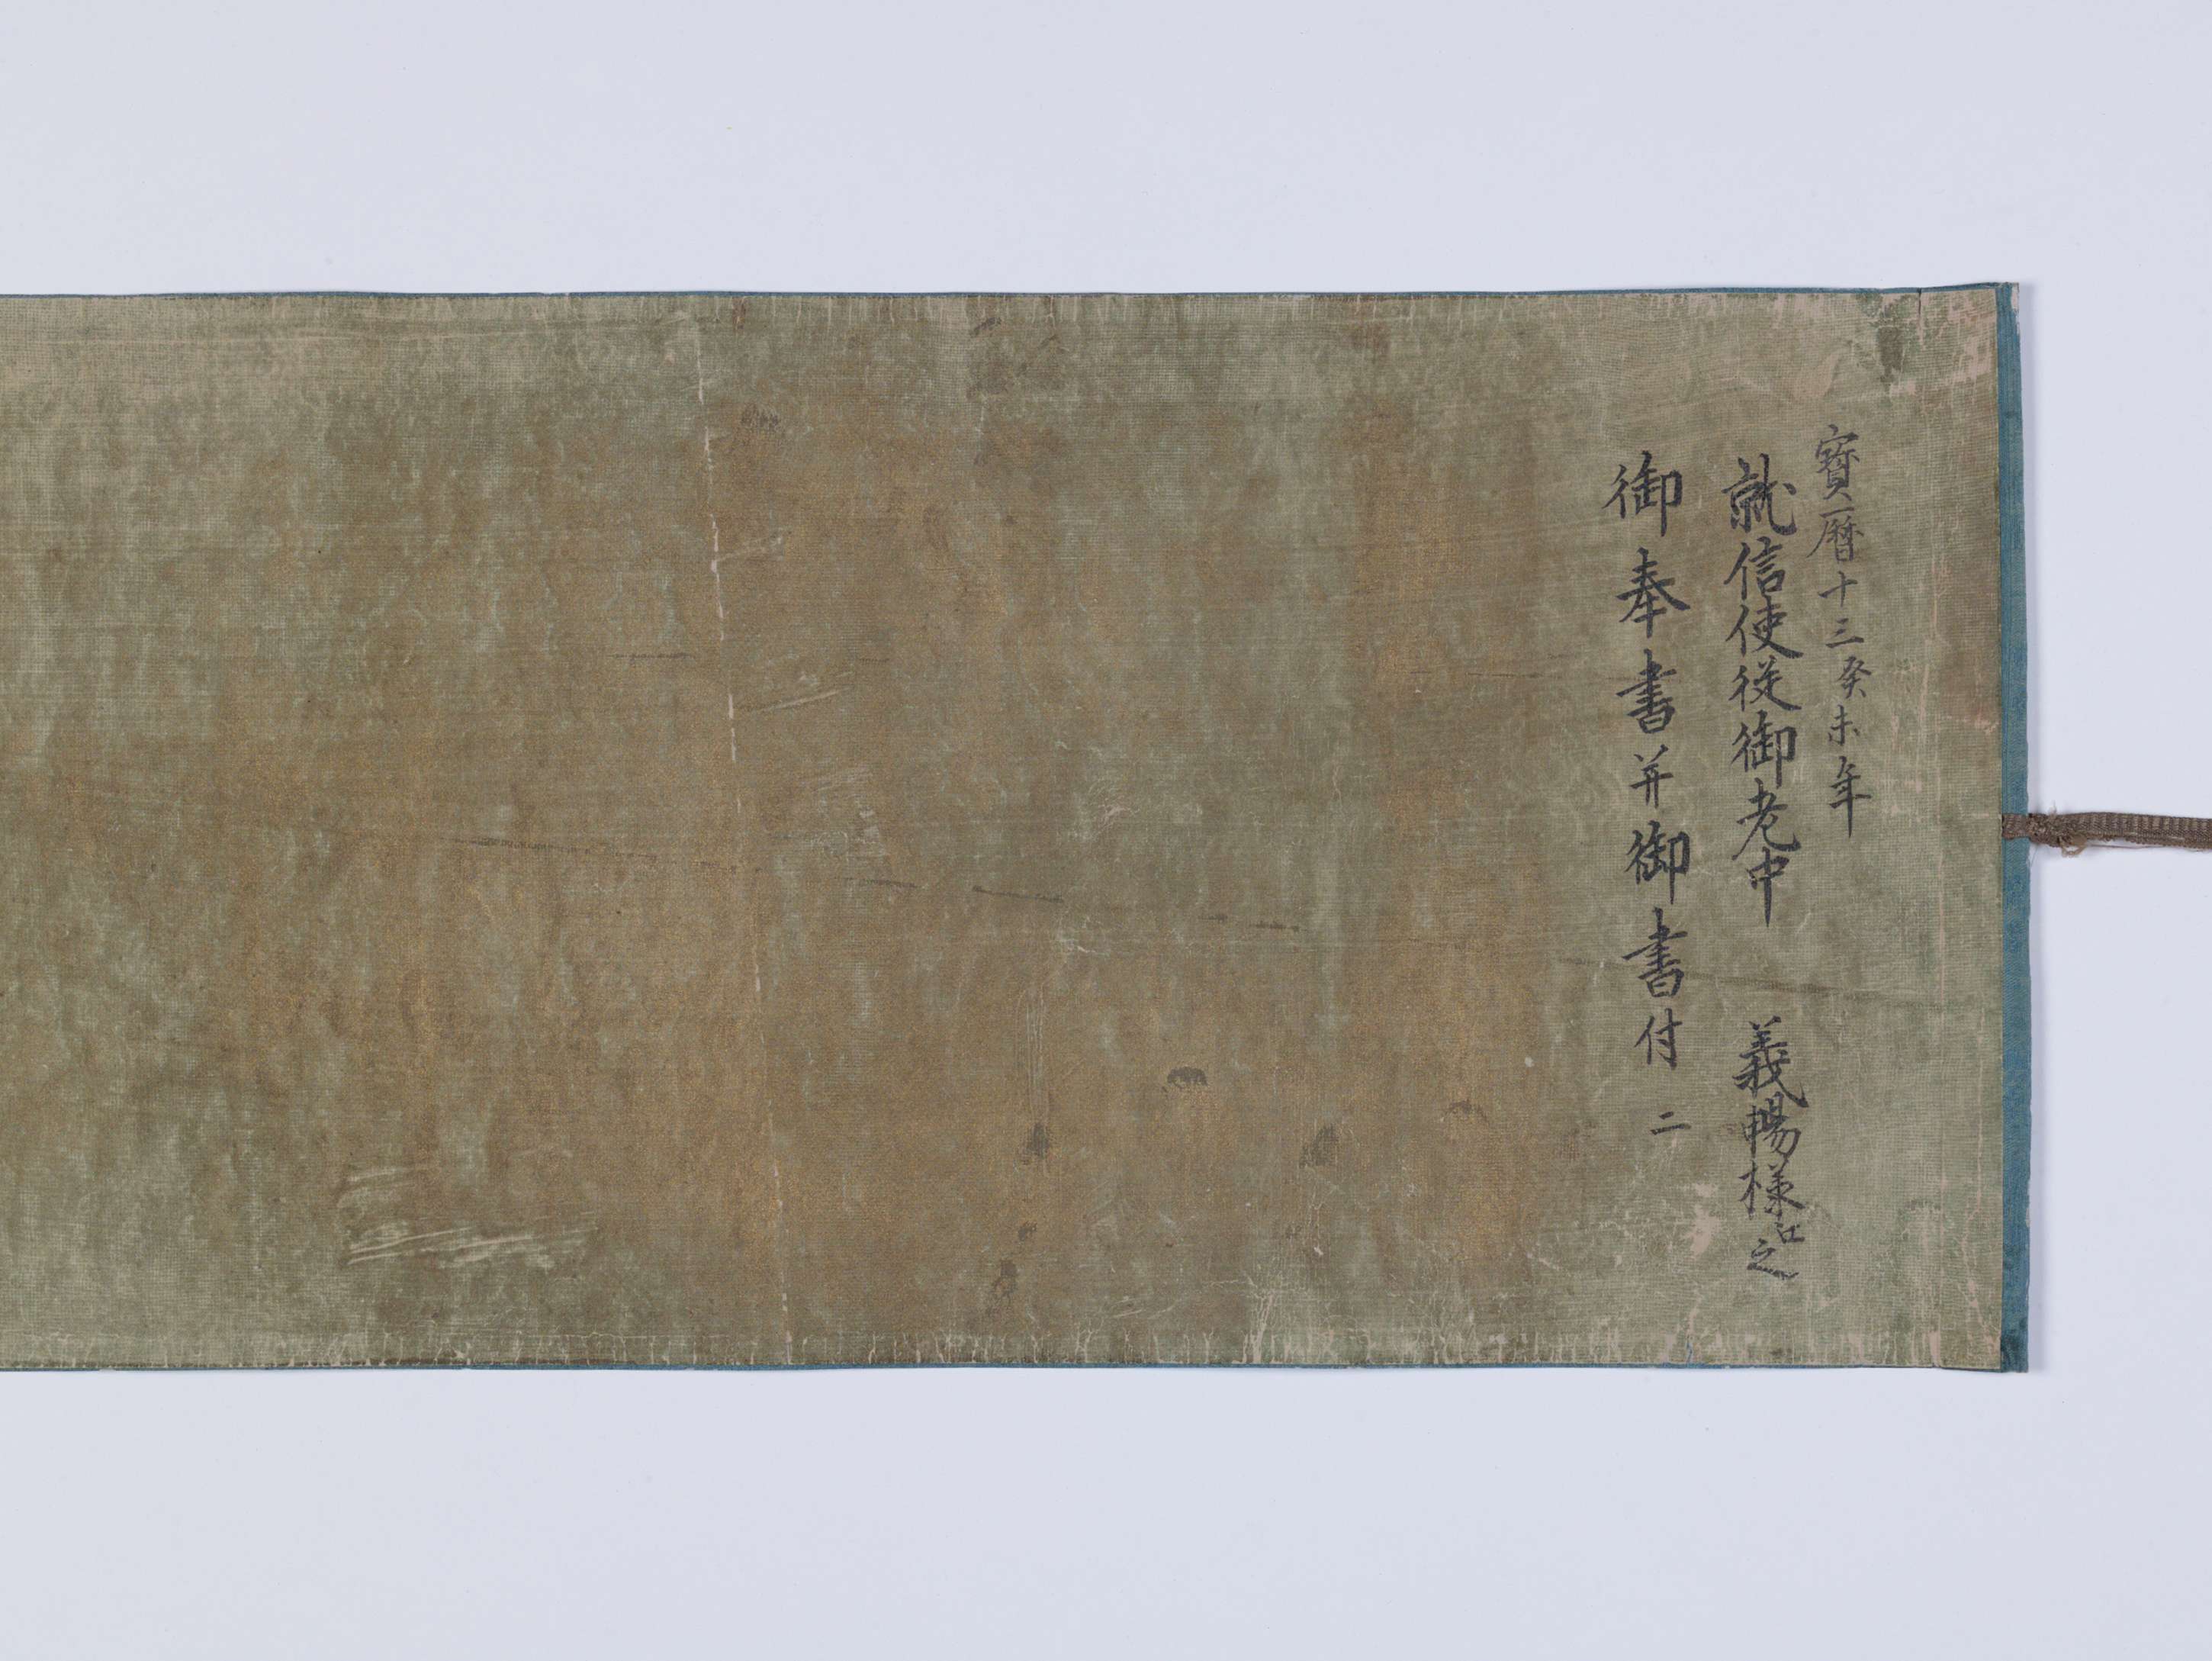 寶暦十三癸未年
就信使従御老中　義暢様江之
御奉書并御書付　二